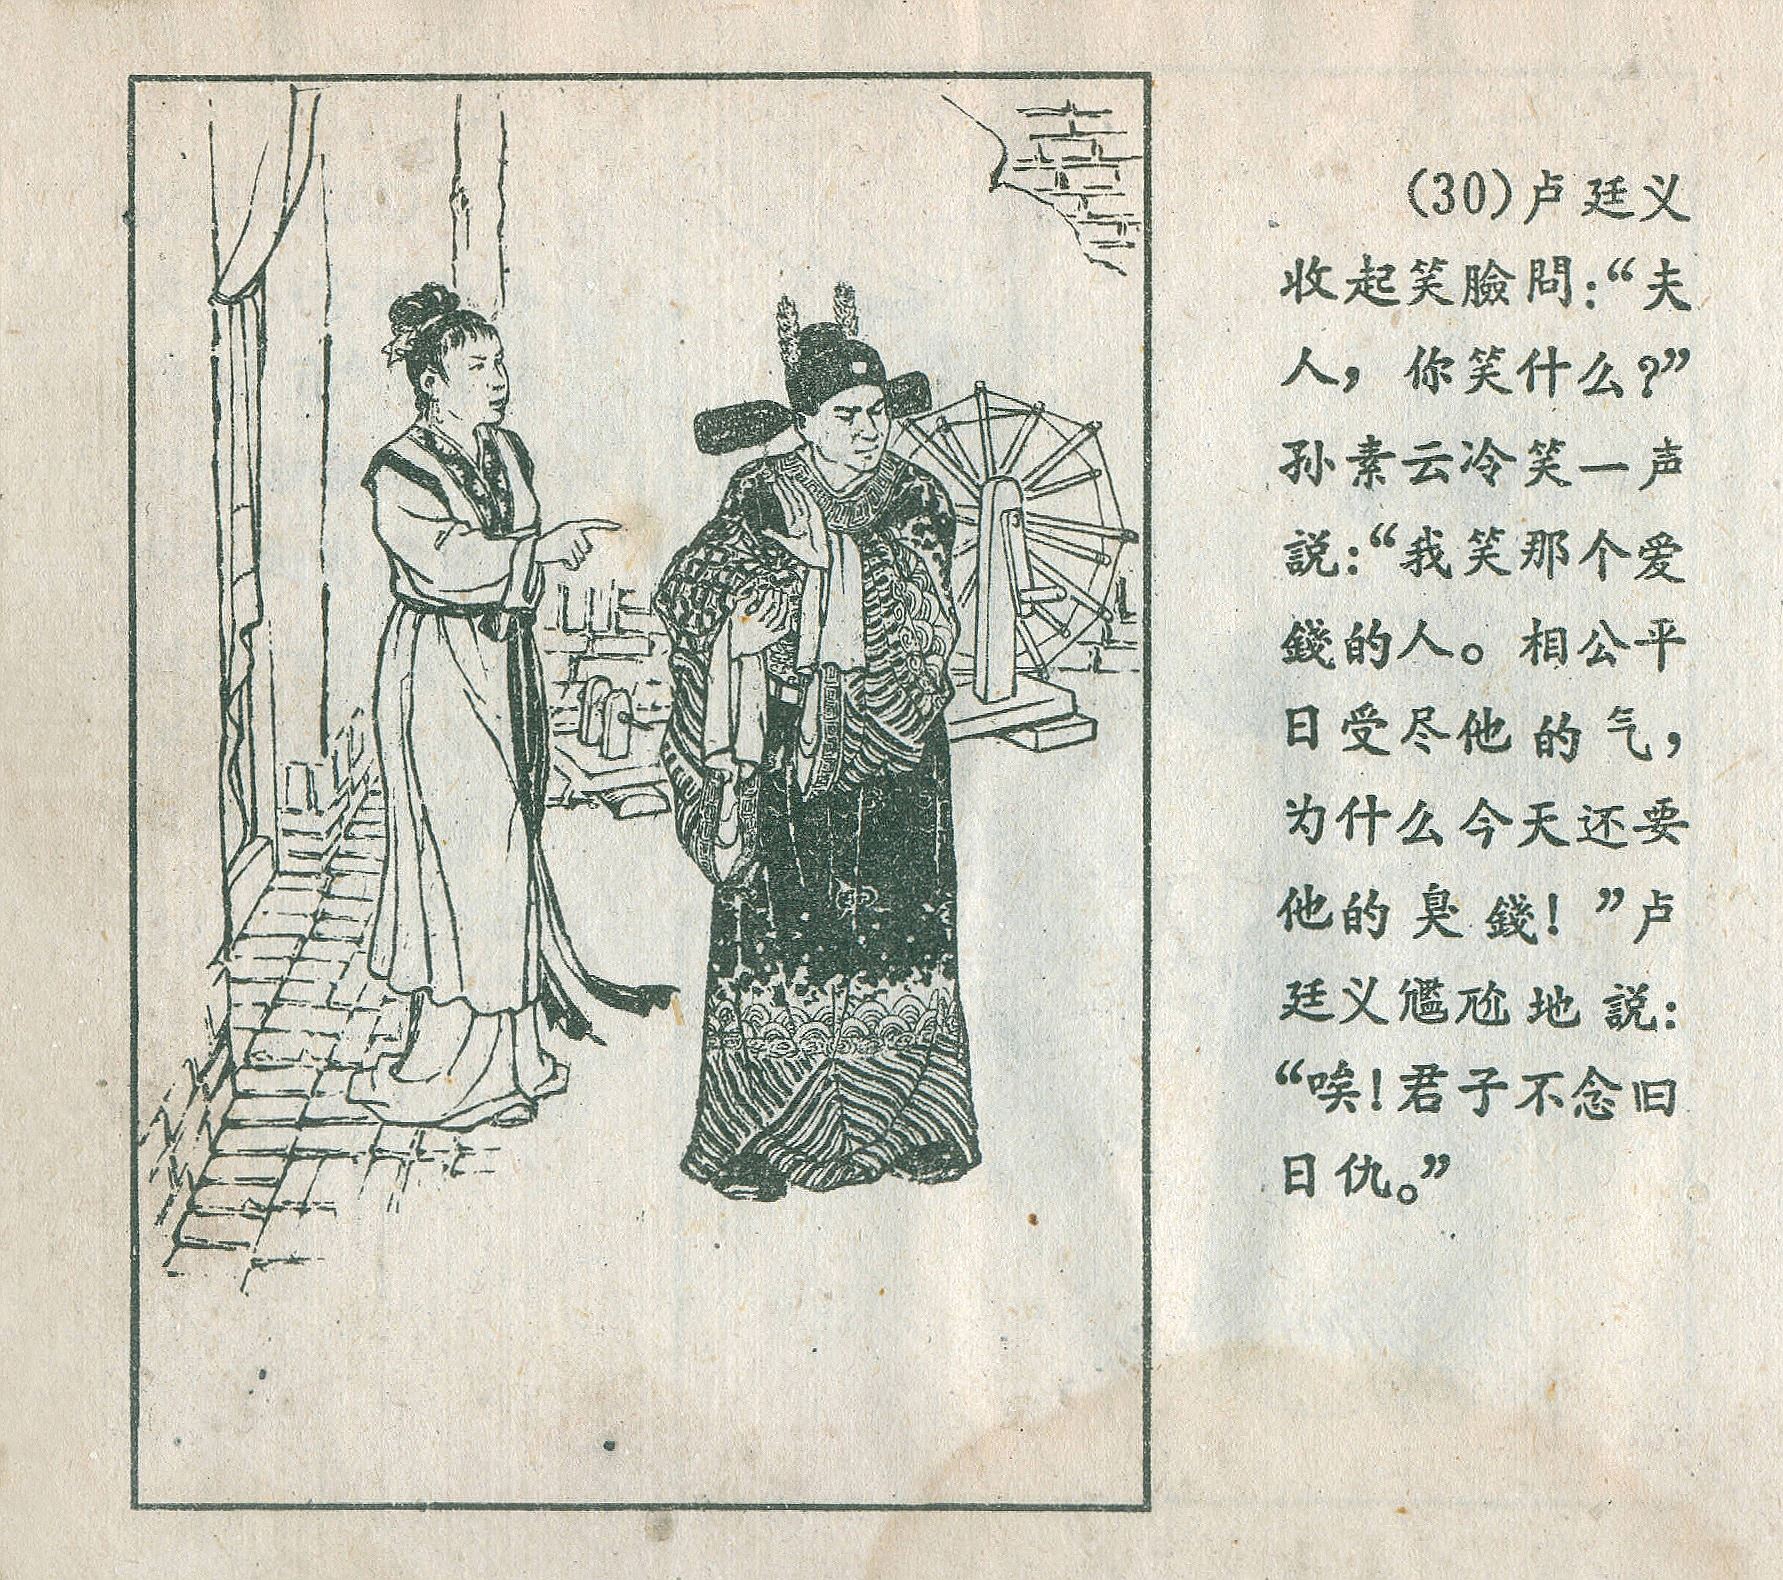 (30)卢廷义
收起笑臉問：“夫
人，你笑什么？”
孙素云冷笑一声
説：“我笑那个爱
錢的人。相公平
日受尽他的气，
为什么今天还要
他的臭錢！”卢
廷义尴尬地説：
“唉！君子不念旧
日仇。”